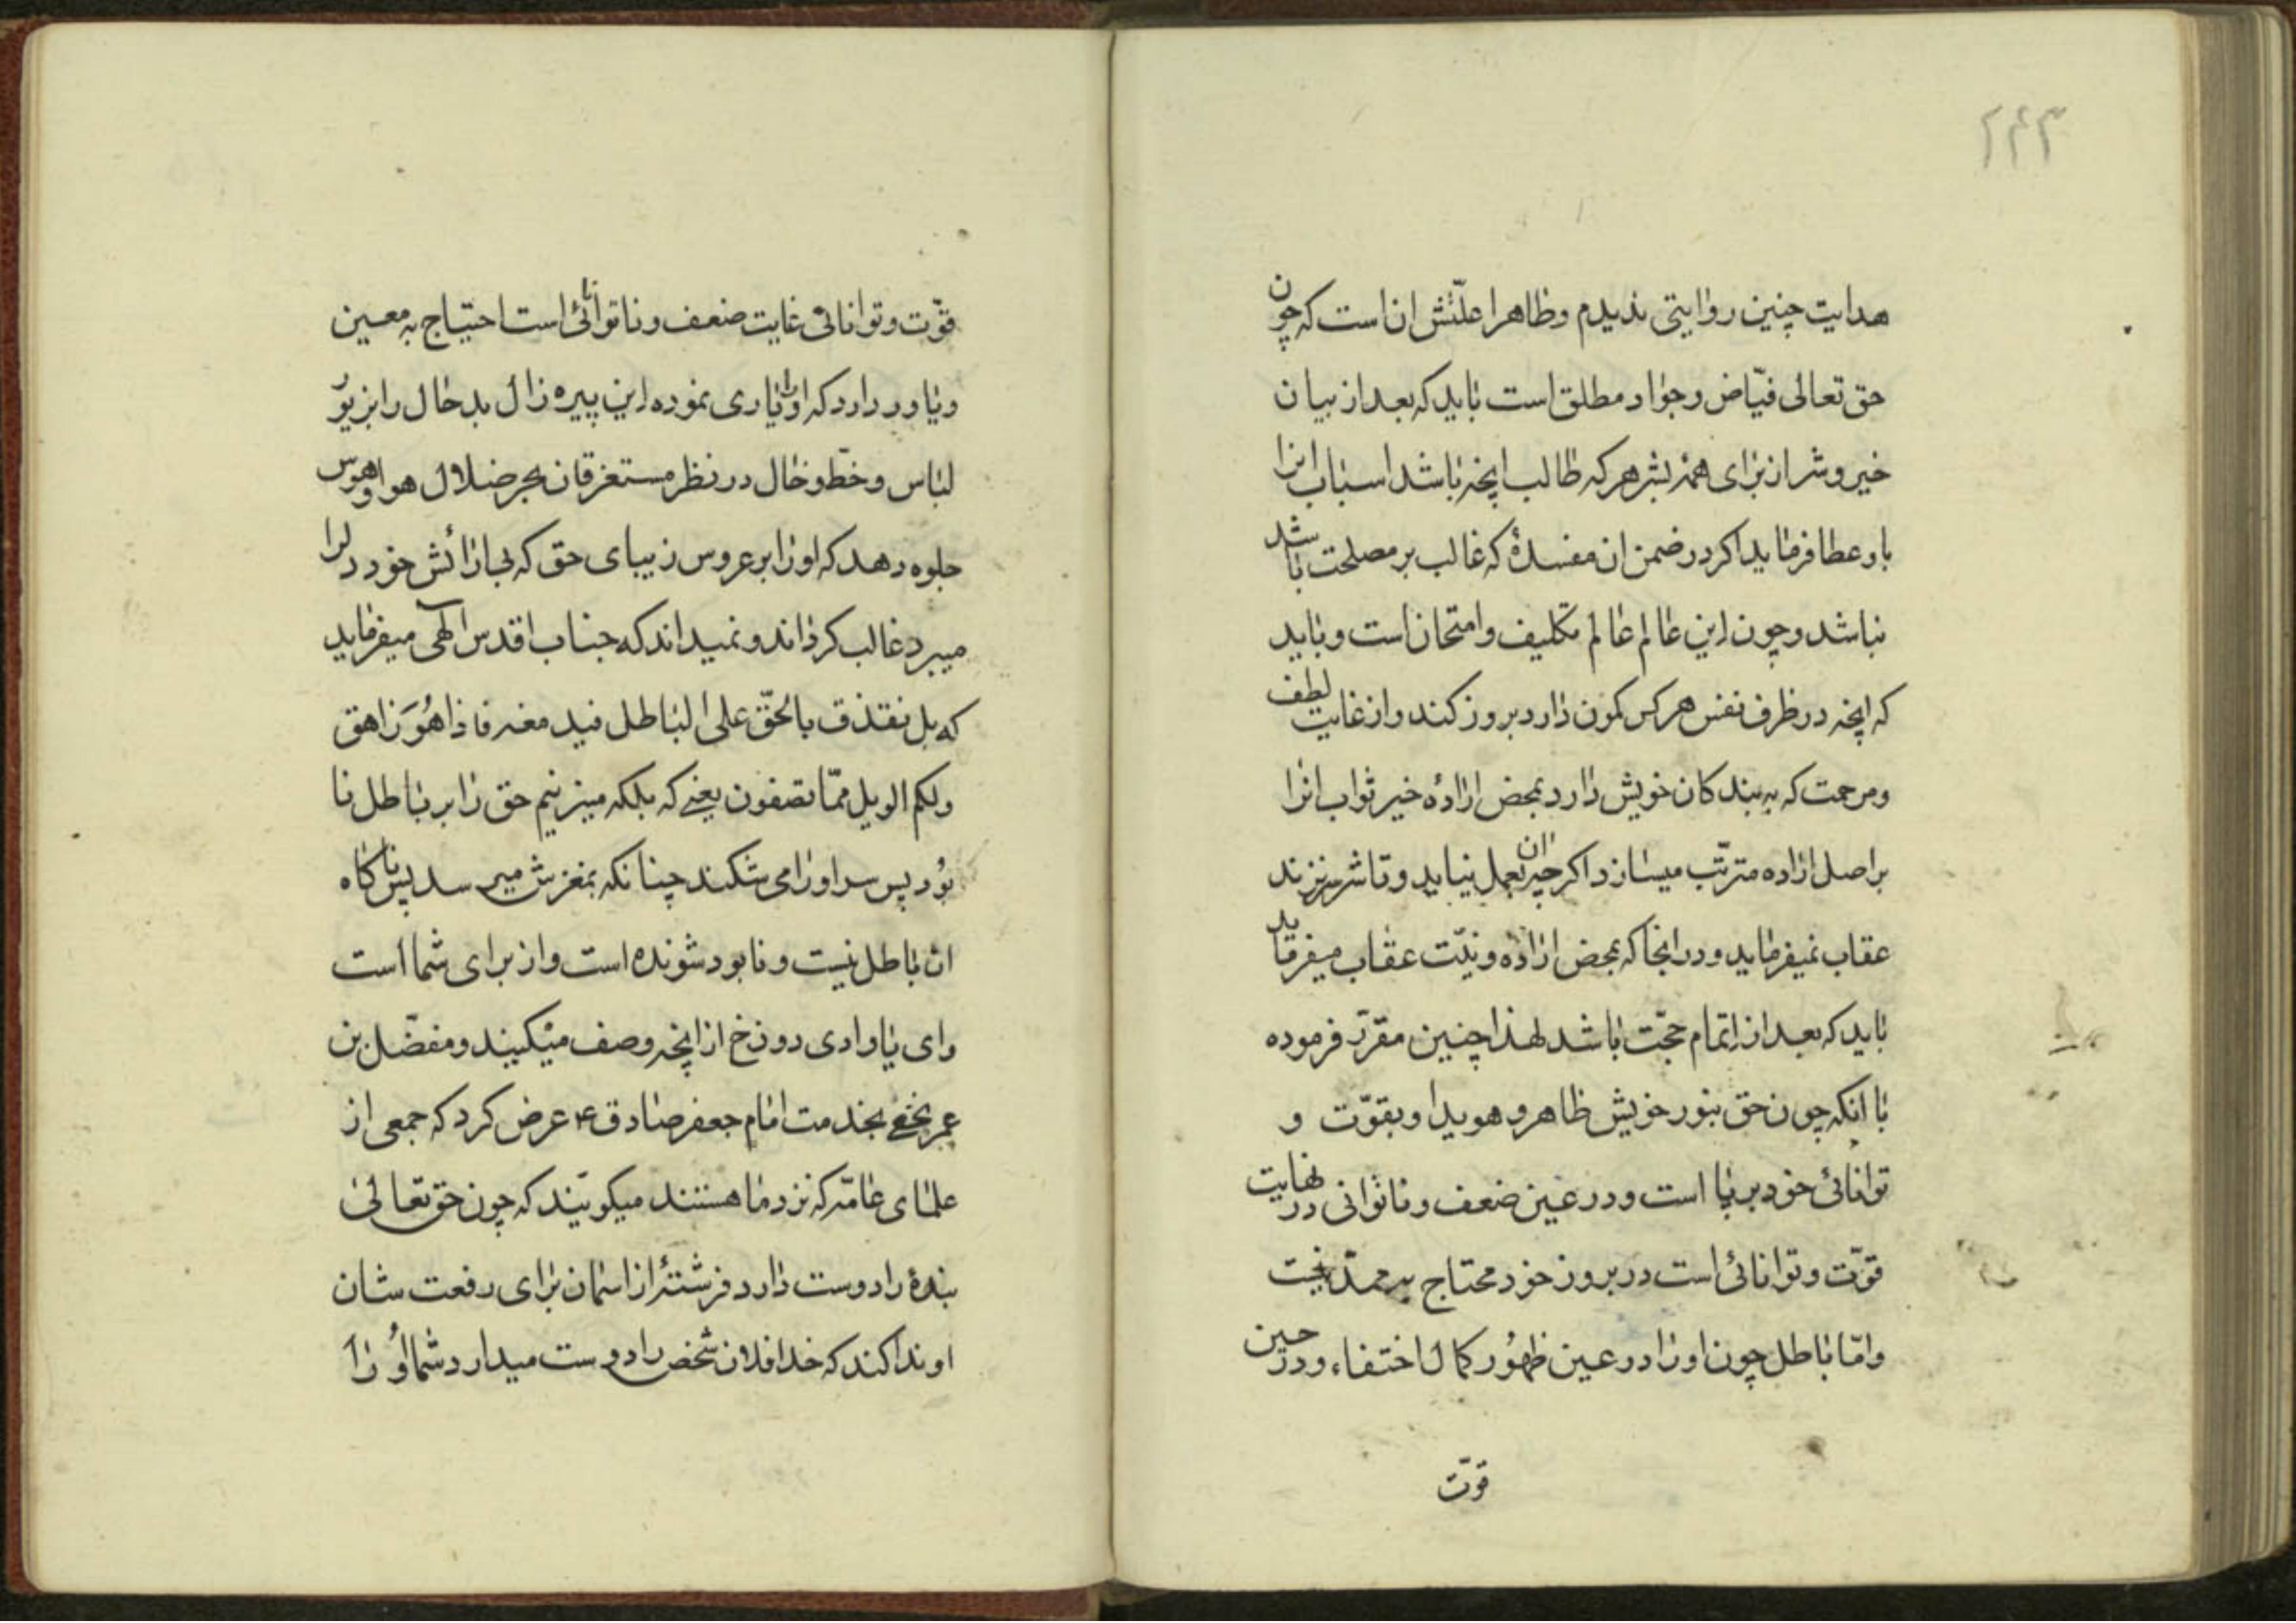 ۲۴۳
هدایت چنین روایتی ندیدم وظاهرا علّتش ان است که چون
حق تعالی فیّاض وجواد مطلق است باید که بعد از بیان
خیر وشر از برای همهٔ بشر هرکه طالب انچه باشد اسباب انرا
باو عطا فرماید اکر در ضمن ان مفسدهٔ که غالب بر مصلحت باشد
نباشد وچون این عالم عالم تکلیف وامتحان است وباید
که انچه در ظرف نفس هرکس کمون دارد بروز کند واز غایت لطف
ومرحمت که به بندکان خویش دارد بمحض ارادهٔ خیر ثواب انرا
بر اصل اراده مترتّب میسازد اکرچه ان بعمل نیاید وتا شر نزند
عقاب نمیفرماید ودر انجا که بمحض اراده ونیّت عقاب میفرماید
باید که بعد از اتمام حجّت باشد لهذا چنین مقرّر فرموده
با انکه چون حق بنور خویش ظاهر وهویدا وبقوّت و
توانائی خود برپا است ودر عین ضعف وناتوانی در نهایت
قوّت وتوانائی است در بروز خود محتاج به ممدّ نیست
وامّا باطل چون اورا در عین ظهُور کمال اختفاء ودر حین
قوّت
قوّت وتوانائی غایت ضعف وناتوانائی است احتیاج به معین
ویاور دارد که اورا یاری نموده این پیره زال بدحال را بزیور
لباس وخطّ وخال در نظر مستغرقان بحر ضلال هوا وهوس
جلوه دهد که اورا بر عروس زیبای حق که بی ارائش خود دلرا
میبرد غالب کرداند ونمیداند که جناب اقدس الٓهی میفرماید
که بل نقذف بالحقّ علی الباطل فیدمغه فاذا هُوَ زاهق
ولکم الویل ممّا تصفون یعنے که بلکه میزنیم حق را بر باطل نا
بُود پس سر اورا می شکند چنانکه بمغزش میرسد پس ناکاه
ان باطل نیست ونابود شونده است واز برای شما است
وای یا وادی دوزخ از انچه وصف میکنیند ومفضّل بن
عمر بخفے بخدمت امام جعفر صادق ع عرض کرد که جمعی از
علمای عامّه که نزد ما هستند میکوئیند که چون حق تعالیٰ
بندهٔ را دوست دارد فرشتهٔ از اسمان برای رفعت شان
او ندا کند که خدا فلان شخص را دوست میدارد شما اوُ را